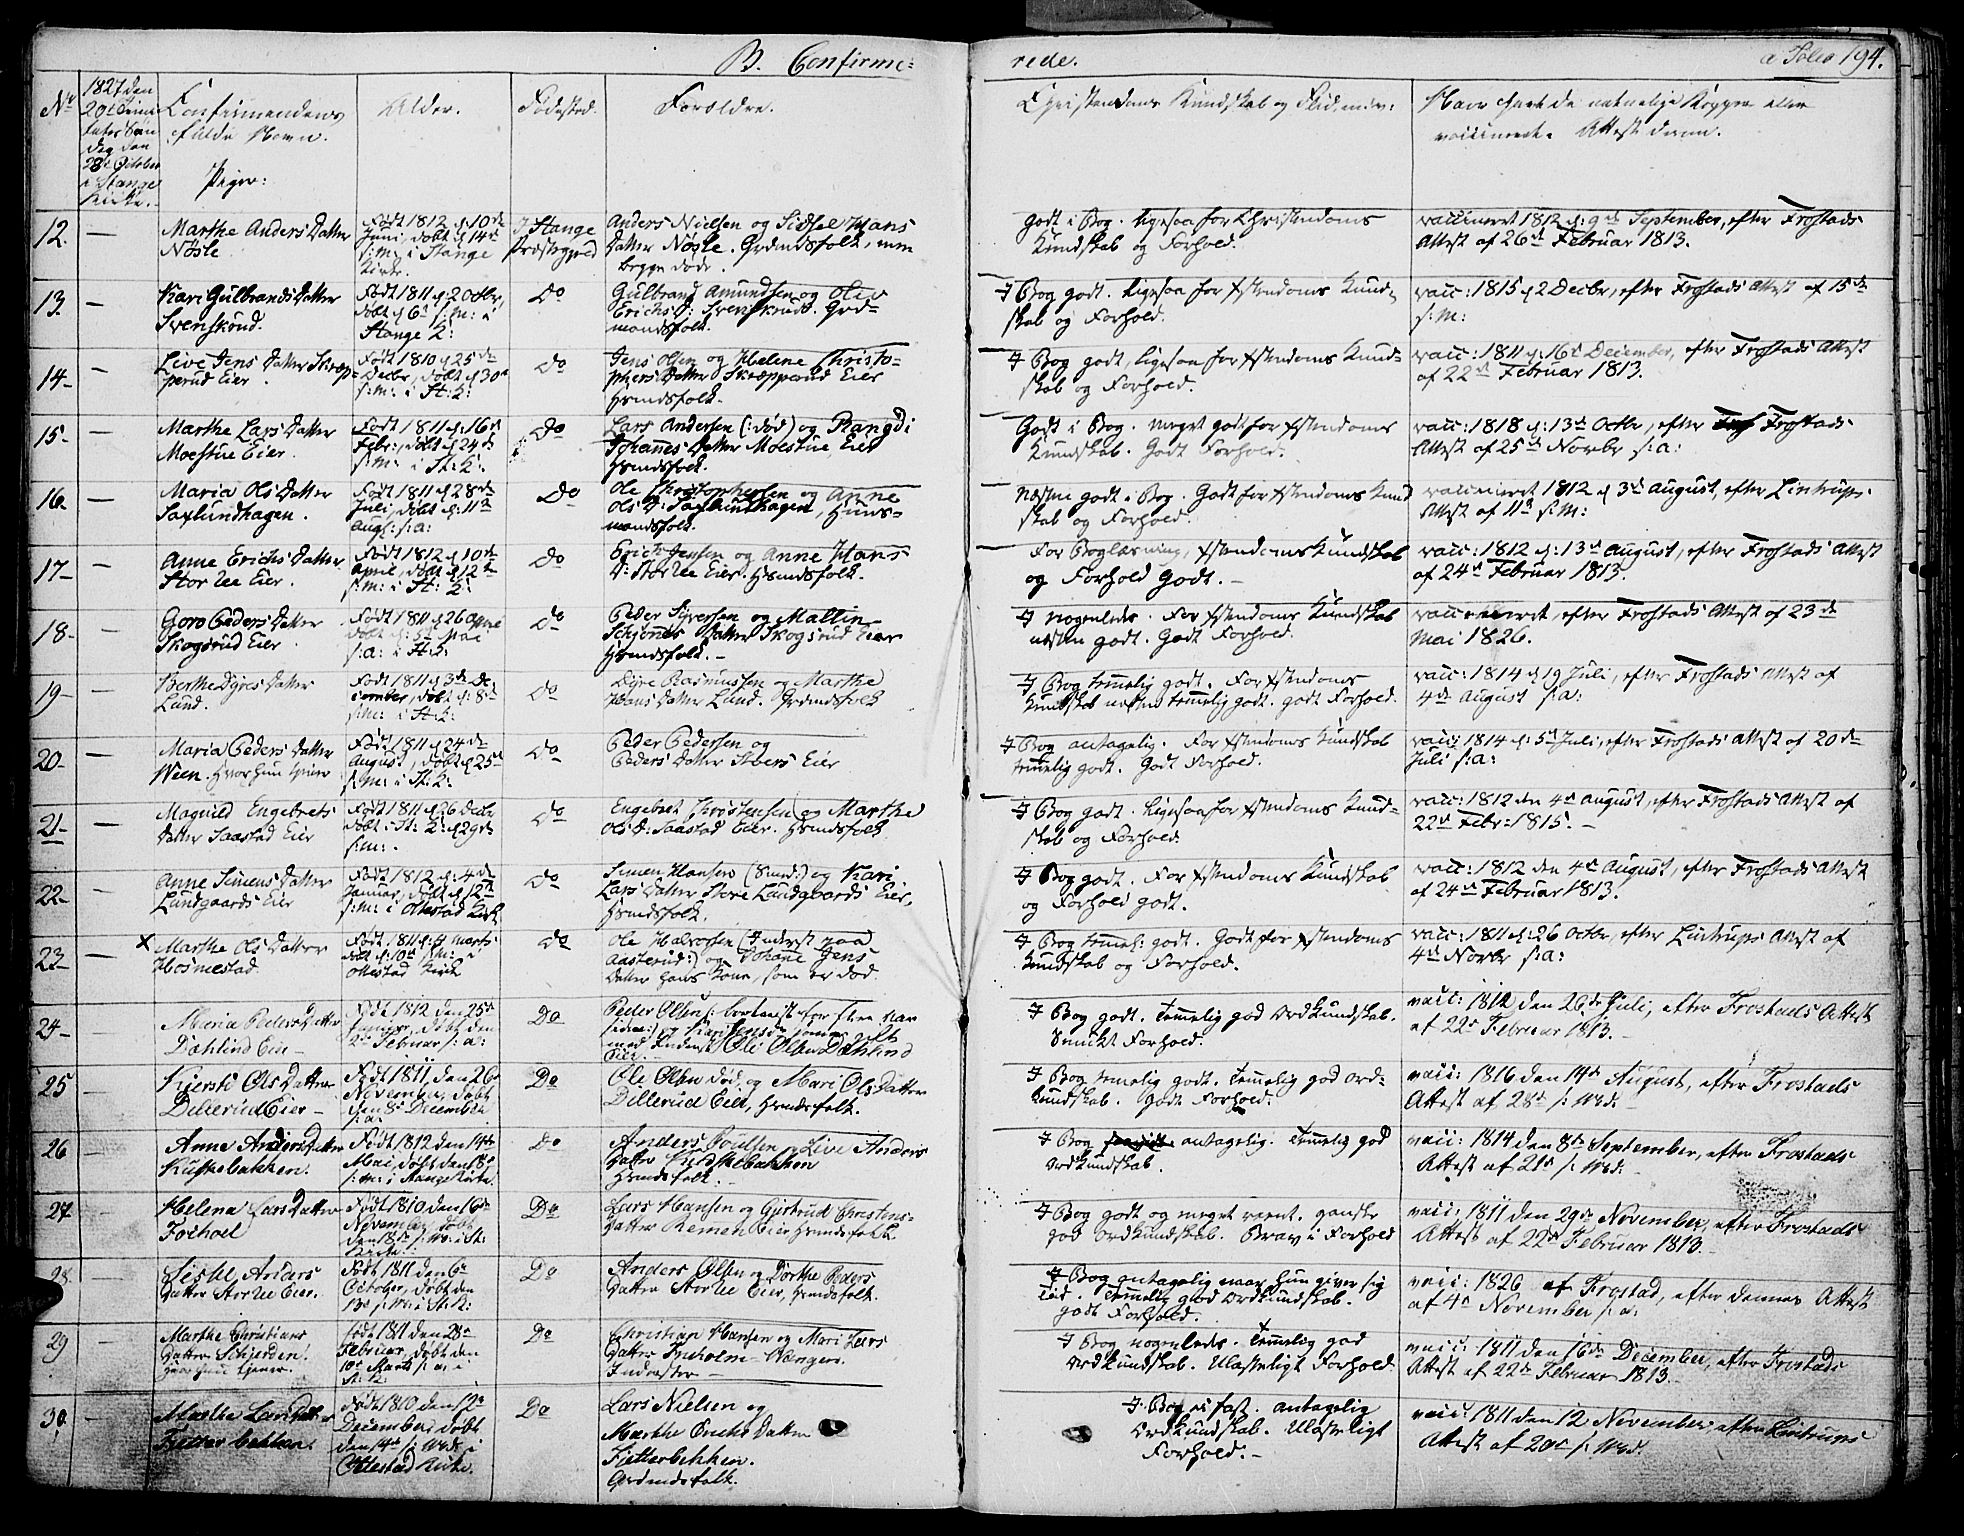 B. Confirme=
rede.
a Folio 194.
No
1827 den
20de
28de October
i Stange
Kirke.
Confirmandens
fulde Navn.
Piger:
Alder.
Fødested.
Forældre.
Christendoms Kundskab og Flid
Have havt de naturlige Kopper eller
vaccinerede. Attest derom.
12.
Marthe Anders Datter
Nøsle
Født 1812 d. 10de
Juni, døbt d. 14de
s: m: i Stange
Kirke.
I Stange
Præstegjeld
Anders Nielsen og Sidsel Hans
Datter Nøsle. Grdmdsfolk, nu
begge døde.
Godt i Bog. ligesaa for Christendoms
Kundskab og Forhold.
vaccineret 1812 d. 9de September, efter Frostads
Attest af 26de Februar 1813.
13.
Kari Gulbrands Datter
Svenskrud.
Født 1811 d. 2 Octbr,
døbt d. 6te s: m: i
Stange K:
Do
Gulbrand Amundsen og Oliv
Erichs D: Svenskrud. Grd=
mandsfolk.
I Bog godt. ligesaa for Xstendoms Kund=
skab og Forhold.
vacc: 1815 d. 2 Decbr, efter Frostads Attest af 15de
s: m:
14.
Live Jens Datter Skræp=
perud Eier.
Født 1810 d. 25de
Decbr, døbt d. 30te
s: m: i St: K:
Do
Jens Olsen og Helene Christo=
phers Datter Skræpperud Eier
Hsmdsfolk.
I Bog godt, ligesaa for Xstendoms Kund=
skab og Forhold.
vacc: 1811 d. 16de December, efter Frostads Attest
af 22de Februar 1813.
15.
Marthe Lars Datter
Moestue Eier.
Født 1811 d. 16de
Febr, døbt d. 24de
s: m: i St: K:
Do
Lars Andersen (: død) og Rangdi
Johannes Datter Moestue Eier
Hsmdsfolk.
Godt i Bog. meget godt for Xstendoms
Kundskab. Godt Forhold.
vacc: 1818 d. 13de Octbr, efter Frostads
Attest af 25de Novbr s: a:
16.
Maria Ols Datter
Saxlundhagen.
Født 1811 d. 28de
Juli, døbt d. 11te
Aug: s: a:
Do
Ole Christophersen og Anne
Ols D: Saxlundhagen, Huus=
mandsfolk.
Næsten godt i Bog. Godt for Xstendoms Kund
skab og Forhold.
vaccineret 1812 d. 3de August, efter Lintrups
Attest af 11te s: m:
17.
Anne Erichs Datter
Storlee Eier.
Født 1812 d. 10de
April, døbt d. 12te
s: m: i St: K:
Do
Erich Jensen og Anne Hans
D: Storlee Eier. Hsmdsfolk.
For Boglæsning, Xstendoms Kundskab
og Forhold Godt.
vacc: 1812 d. 13de August, efter Frostads Attest
af 24de Februar 1813.
18.
Goro Peders Datter
Skogsrud Eier.
Født 1811 d. 26 April
døbt d. 5te Mai
s: a: i St: K:
Do
Peder Syversen og Mallin
Datter Skogsrud Eier
Hsmdsfolk.
I nogenledes. For Xstendoms Kundskab
næsten godt. Godt Forhold.
vaccineret, efter Frostads Attest af 23de
Mai 1826.
19.
Berthe Dyres Datter
Lund.
Født 1811 d. 3de De=
cember, døbt d. 8de
s: m: i St: K:
Do
Dyre Rasmussen og Marthe
Hans Datter Lund. Grdmdsfolk
I Bog temmelig godt. For Xstendoms
Kundskab næsten temmelig godt. godt Forhold.
vacc: 1814 d. 19 Juli, efter Frostads Attest af
4de August s: a:
20.
Maria Peders Datter
Ween. hvor hun tjener
Født 1811 d. 24de
August, døbt d. 25de
s: m: i St: K:
Do
Peder Pedersen og
Peders Datter Eier
I Bog antagelig. For Xstendoms Kundskab
temmelig godt. Godt Forhold.
vacc: 1814 d. 5te Juli, efter Frostads Attest af 20de
Juli s: a:
21.
Magnild Engebrets
Datter Saastad Eier
Født 1811 d. 26 Decbr
døbt i St: K: d. 29de
s: m:
Do
Engebret Thostensen og Marthe
Ols D: Saastad Eier. Hsmdsfolk
I Bog godt. ligesaa for Xstendoms Kund=
skab og Forhold.
vacc: 1812 den 4de August, efter Frostads Attest af
22de Febr: 1815.
22.
Anne Simens Datter
Lundgaards Eier
Født 1812 d. 4de
Januar, døbt d. 12te
s: m: i Ottestad Kirke
Do
Simen Hansen (Smed:) og Kari
Lars Datter Store Lundgaards Eier,
Hsmdsfolk.
I Bog godt. For Xstendoms Kundskab
og Forhold godt.
vacc: 1812 den 4de August, efter Frostads Attest
af 24de Februar 1813.
23.
X Marthe Ols Datter
Hosmestad
Født 1811 d. 4 Marts
døbt d. 10de s: m: i
Ottestad Kirke
Do
Ole Halvorsen (Inderst paa
Aasterud:) og Johane Jens
Datter hans Kone, som er død
I Bog temmel: godt. Godt for Xstendoms
Kundskab og Forhold.
vacc: 1811 d. 26 Octbr, efter Lintrups Attest af
4de Novbr s: a:
24.
Maria Peders Datter
Dahlind Eier
Født 1812 den 25de
Januar, døbt den
2de Februar s: a:
Do
Peder Olsen (: bortreist for flere Aar
siden:) og Kari Jensd: som er gift
med Inderst Ole Olsen Dahlind
Eier.
I Bog godt. Temmelig god Ordkundskab.
Smukt Forhold.
vacc: 1812 den 26de Juli, efter Frostads Attest
af 22de Februar 1813.
25
Kjersti Ols Datter
Dillerud Eier
Født 1811 den 26de
November, døbt
den 8de December
s: a:
Do
Ole Olsen død, og Mari Ols Datter
Dillerud Eier, Hsmdsfolk.
I Bog temelig godt. Temelig god Ord=
kundskab. Godt Forhold.
vacc: 1816 den 14de August, efter Frostads
Attest af 28de s: Md:
26
Anne Anders Datter
Kuskebakken.
Født 1812 den 14de
Mai, døbt den 18de
s: m: i Stange Kirke.
Do
Anders Poulsen og Live Anders
Datter Kuskebakken
Hsmdsfolk.
I Bog antagelig. Temmelig god
Ordkundskab.
vacc: 1814 den 8de September, efter Frostads
Attest af 21de s: Md:
27
Helena Lars Datter
Født 1810 den 16de
November, døbt
den 18de s: Md: i St:
Kirke.
Do
Lars Hansen og Gjertrud Christens=
Datter Remen Eier, Hsmdsfolk.
I Bog godt og meget vant. ganske
god Ordkundskab. Brav i Forhold
vacc: 1811 den 29de November, efter Frostads
Attest af 22de Februar 1813.
28
Sislle Anders
Datter Storlee Eier.
Født 1811 den 6te
October, døbt den
13de s: M: i St: K:
Do
Anders Olsen og Dorthe Peders
Datter Storlee Eier, Hsmdsfolk.
I Bog antagelig naar hun giver sig
Tid. Temelig god Ordkundskab.
godt Forhold.
vacc: 1826 af Frostad, efter dennes Attest
af 4de November s: a:
29
Marthe Christians
Datter
hvor hun tjener.
Født 1811 den 28de
Februar, døbt den
10de Marts s: a: i
St: K:
Do
Christian Hansen og Mari Lars
Datter
Inderster
I Bog nogenledes. Temelig god
Ordkundskab. Ulasteligt Forhold
vacc: 1811 den 16de December, efter Frostads
Attest af 22de Februar 1813.
30.
Marthe Lars Datter
Fætterbekken.
Født 1810 den 12te
December, døbt
den 14de s: Md: i
Ottestad Kirke.
Do
Lars Nielsen og
Marthe Erichs Datter
Fætterbekken.
Grdmdsfolk.
I Bog ei fast. antagelig
Ordkundskab. Ulasteligt
Forhold.
vacc: 1811 den 12 November, efter Lintrups
Attest af 20de s: Md: